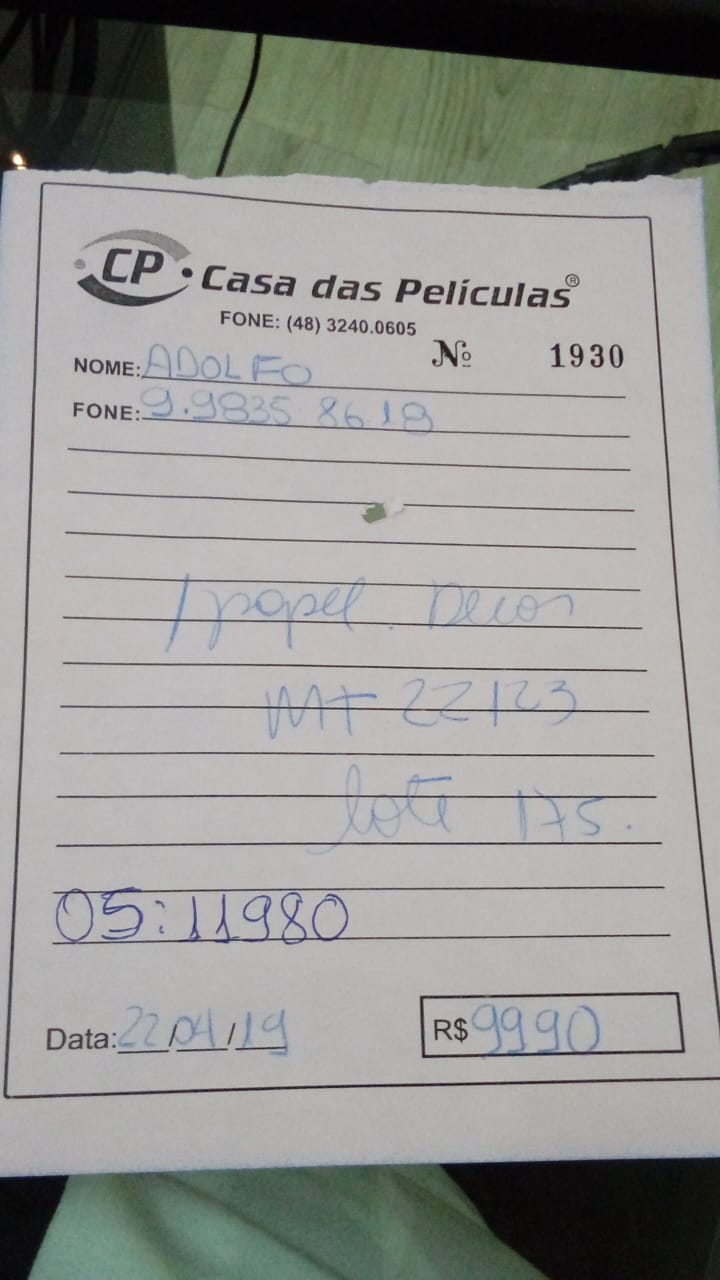 CP • Casa das Películas®
FONE: (48) 3240.0605
Nº 1930
NOME: ADOLFO
FONE: 9.9835 8619
1 papel. Decor
MT 22123
lote 175.
OS: 11980
Data: 22/04/19
R$ 9990